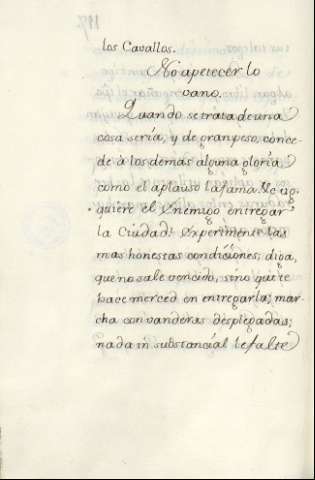 117
los Cavallos.
No apetecèr lo
vano.
Quando se trata de una
cosa seria, y de gran peso, conce-
de à los demàs alguna gloria,
como el aplauso la fama.
quiere el Enemigo entregar
la Ciudad? Experimente las
mas honestas condiciones; diga,
que no sale vencido, sino que te
hace merced en entregarla; mar-
cha con vanderas desplegadas;
nada in substancial le falte